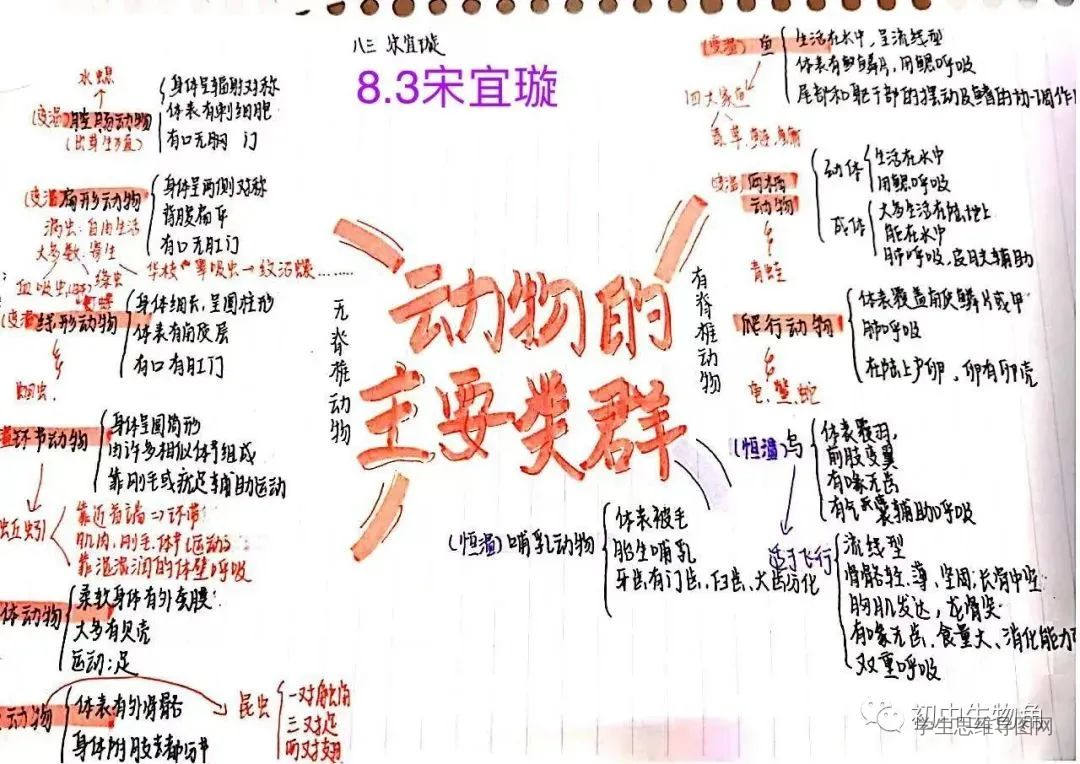 八三 宋宜璇
8.3宋宜璇
动物的
主要类群
无脊椎动物
水螅
(变温)腔肠动物
(出芽生殖)
身体呈辐射对称
体表有刺细胞
有口无肛门
(变温)扁形动物
涡虫:自由生活
大多数:寄生
身体呈两侧对称
背腹扁平
有口无肛门
血吸虫
绦虫
华枝睾吸虫→纹沼螺……
(变温)线形动物
蛔虫
身体细长,呈圆柱形
体表有角质层
有口有肛门
温环节动物
身体呈圆筒形
由许多相似体节组成
靠刚毛或疣足辅助运动
蚯蚓
靠近首端⇒环带
肌肉,刚毛,体节(运动)
靠湿润的体壁呼吸
体动物
柔软身体有外套膜
大多有贝壳
运动:足
动物
体表有外骨骼
身体附肢都分节
昆虫
一对触角
三对足
两对翅
有脊椎动物
(变温)鱼
生活在水中,呈流线型
体表有鳞片,用鳃呼吸
尾部和躯干部的摆动及鳍的协调作
四大家鱼
青、草、鲢、鳙
(变温)两栖
动物
青蛙
幼体
生活在水中
用鳃呼吸
成体
大多生活在陆地上
能在水中
肺呼吸,皮肤辅助
爬行动物
龟、鳖、蛇
体表覆盖角质鳞片或甲
肺呼吸
在陆上产卵,卵有卵壳
(恒温)鸟
体表覆羽,
前肢变翼
有喙无齿
有气囊辅助呼吸
适于飞行
流线型
骨骼轻、薄、坚固;长骨中空
胸肌发达,龙骨突
有喙无齿、食量大、消化能力
双重呼吸
(恒温)哺乳动物
体表被毛
胎生哺乳
牙齿有门齿、臼齿、犬齿分化
初中生物角
学生思维导图网